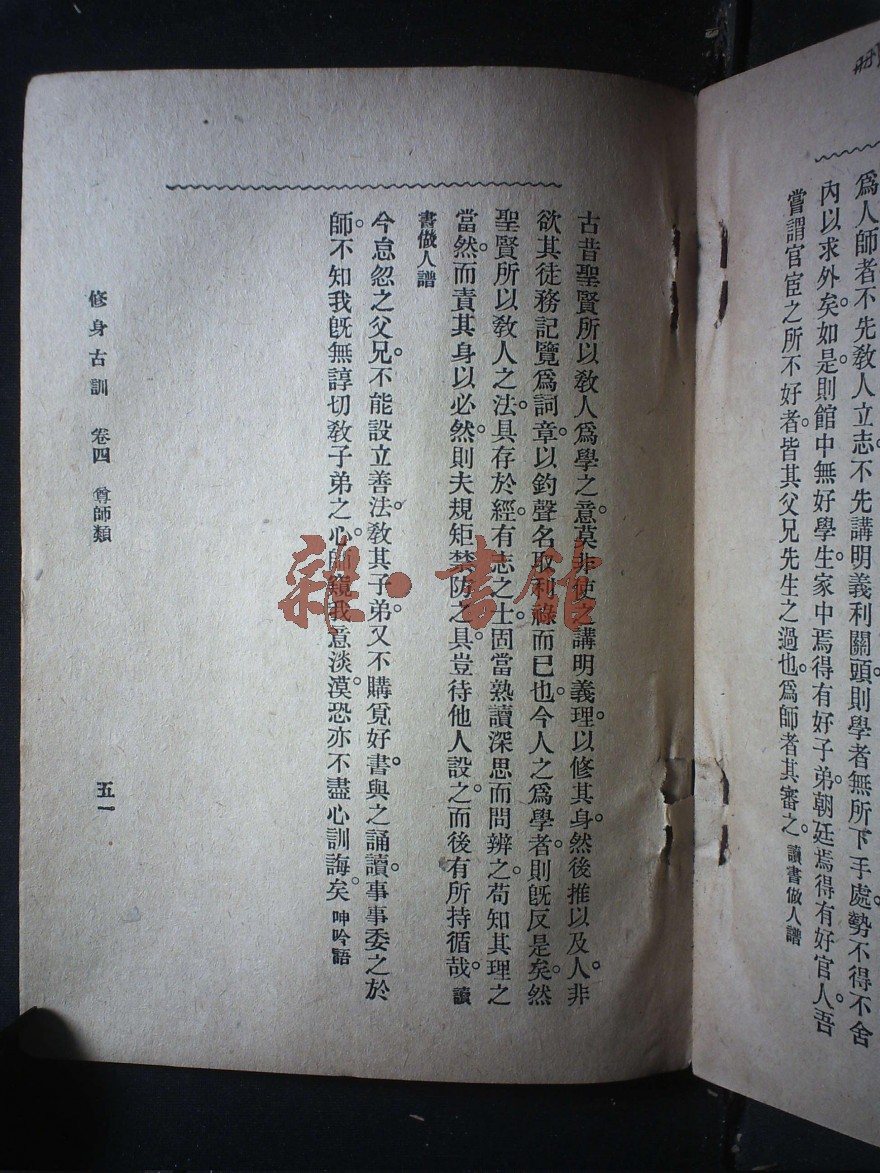 爲人師者不先敎人立志。不先講明義利關頭。則學者無所下手處。勢不得不舍
內以求外矣。如是。則館中無好學生。家中焉得有好子弟。朝廷焉得有好官人。吾
嘗謂官宦之所不好者。皆其父兄先生之過也。爲師者其審之。讀書做人譜
古昔聖賢所以敎人爲學之意。莫非使之講明義理。以修其身。然後推以及人。非
欲其徒務記覽爲詞章。以釣聲名取利祿而已也。今人之爲學者。則旣反是矣。然
聖賢所以敎人之法。具存於經。有志之士。固當熟讀深思而問辨之。苟知其理之
當然。而責其身以必然。則夫規矩禁防之具。豈待他人設之。而後有所持循哉。讀
書做人譜
今怠忽之父兄。不能設立善法。敎其子弟。又不購覓好書。與之誦讀。事事委之於
師。不知我旣無諄切敎子弟之心。師窺我意淡漠。恐亦不盡心訓誨矣。呻吟語
修身古訓 卷四 尊師類
五一
雜·書館